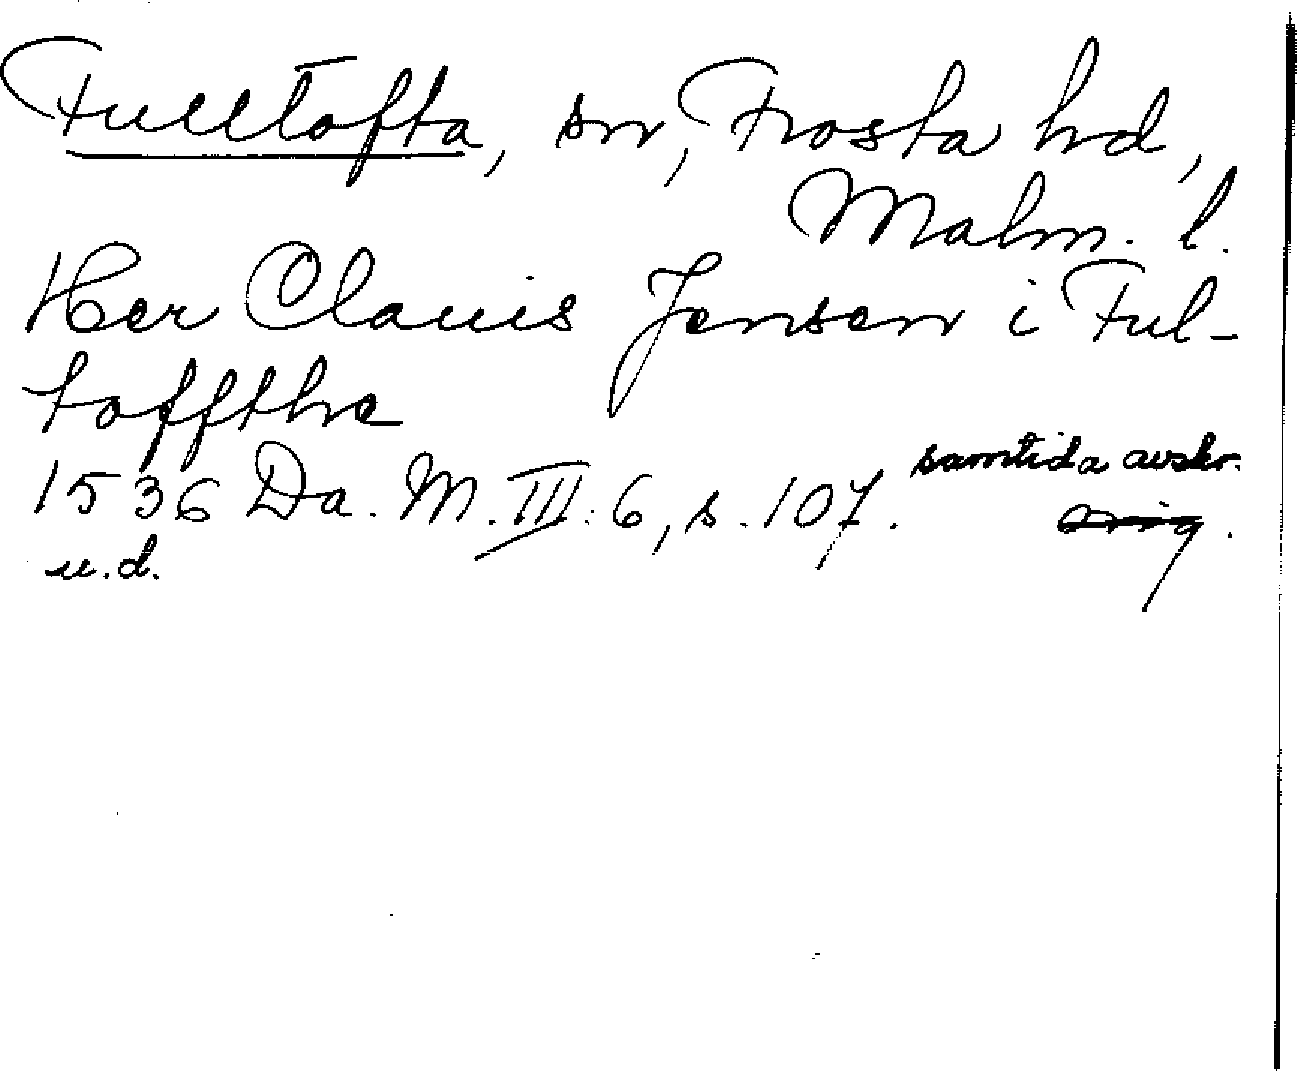 Fulltofta, sn, Frosta hd,
Malm. l.
Her Clauis Jensen i Ful-
toffthe
samtida avskr.
1536 Da. M. III: 6, s. 107. orig.
u.d.